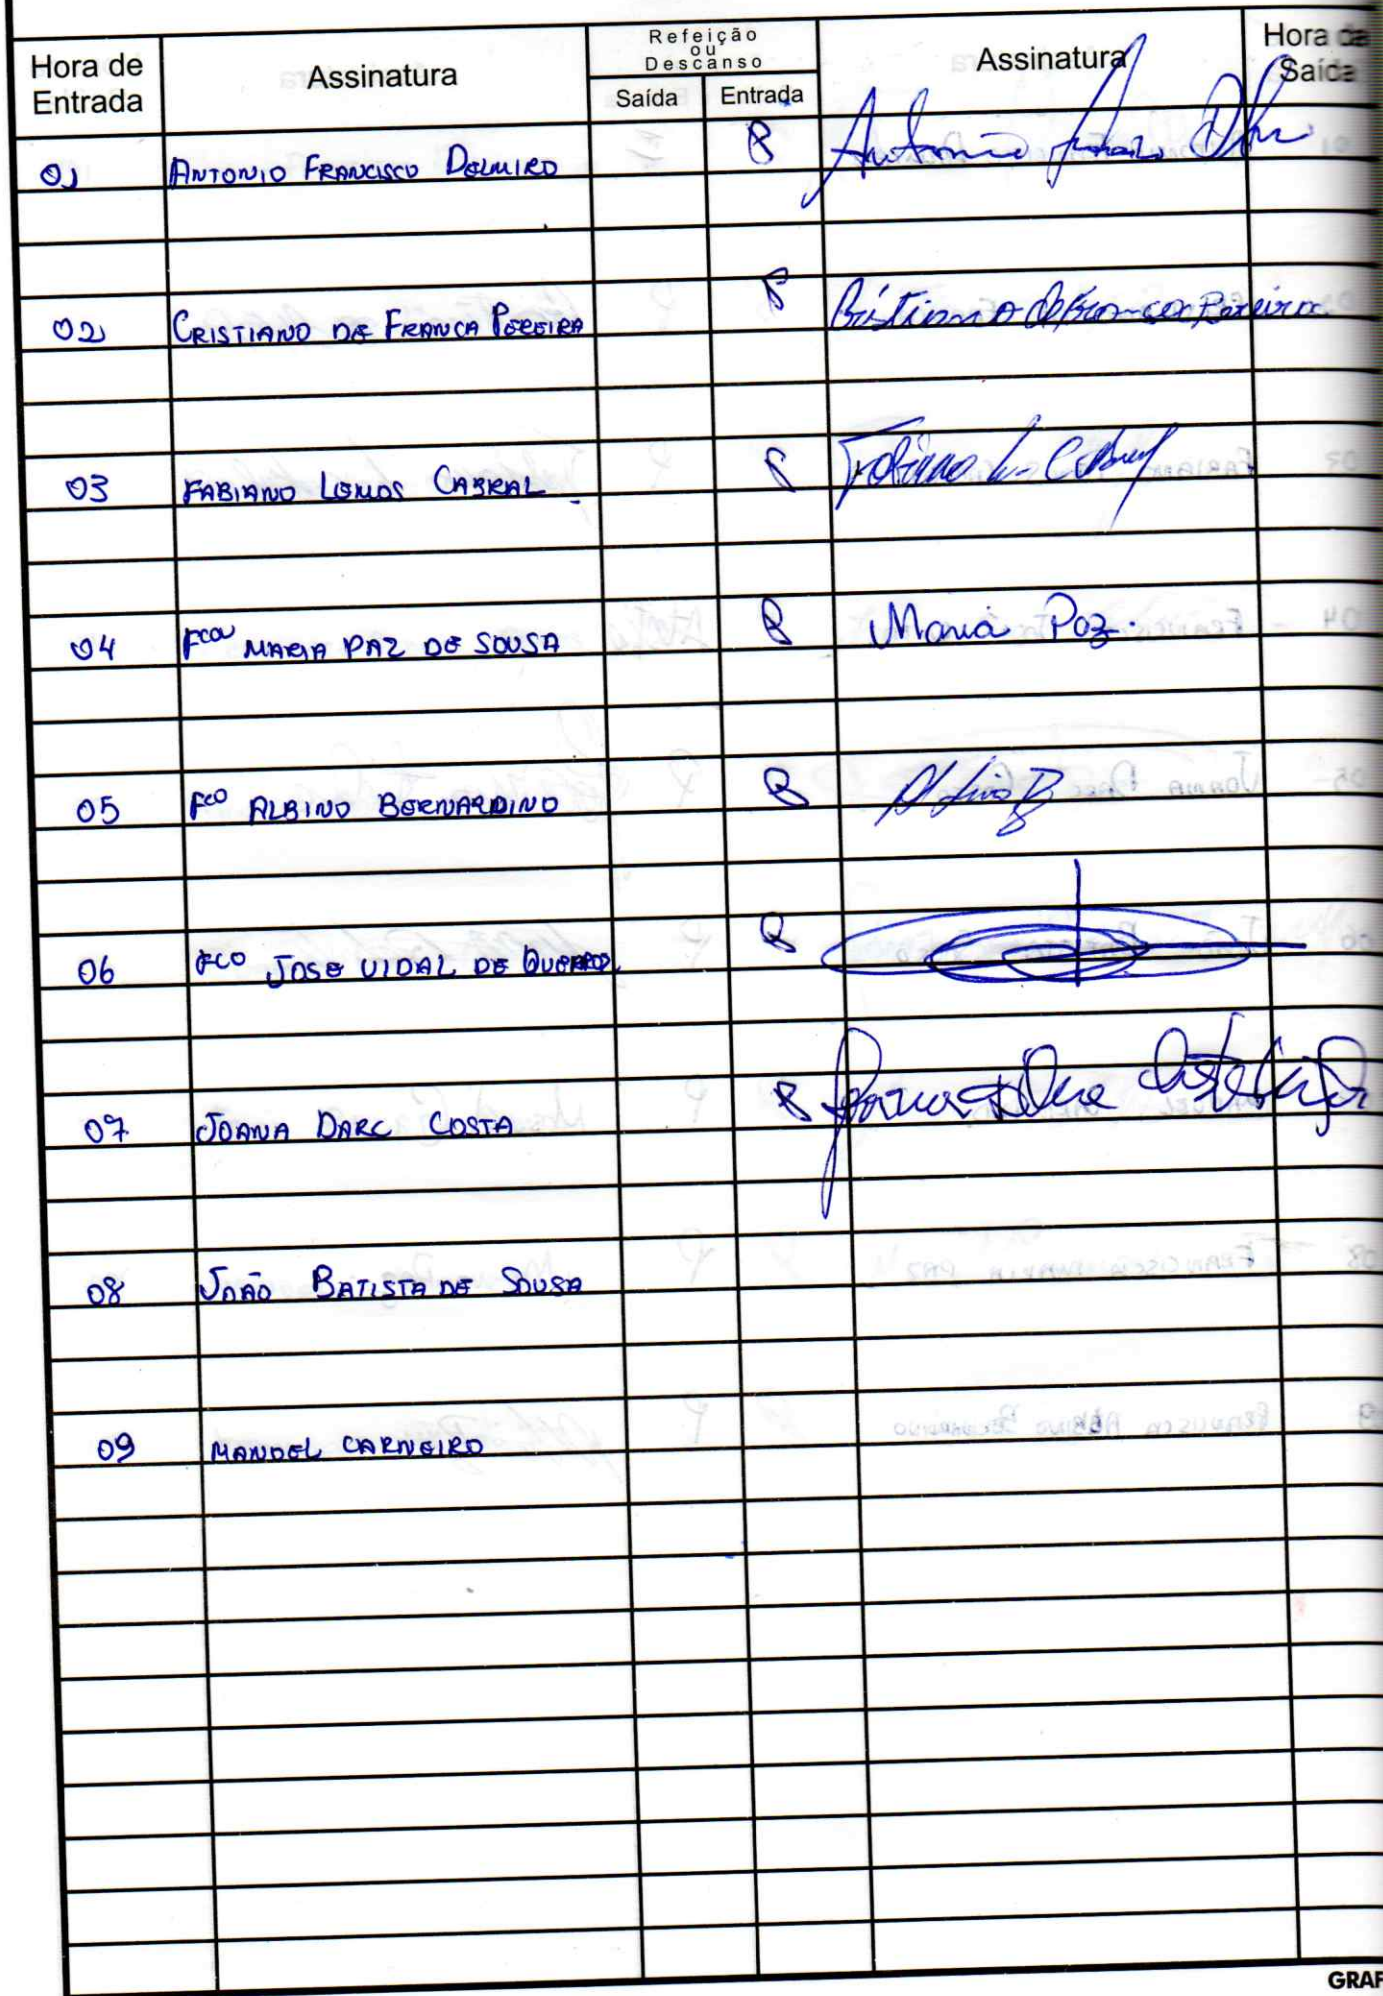 Hora de Entrada Assinatura Refeição ou Descanso Saída Entrada Assinatura Hora de Saída
01 ANTONIO FRANCISCO DELMIRO P Antonio
02 CRISTIANO DE FRANCA PEREIRA P Cristiano de Franca Pereira
03 FABIANO LEMOS CABRAL P Fabiano Cabral
04 Fca MARIA PAZ DE SOUSA P Maria Paz.
05 Fco ALBINO BERNARDINO P Albino B
06 Fco JOSE VIDAL DE QUEIROZ P
07 JOANA DARC COSTA P Joana
08 JOÃO BATISTA DE SOUSA
09 MANOEL CARNEIRO
GRAF